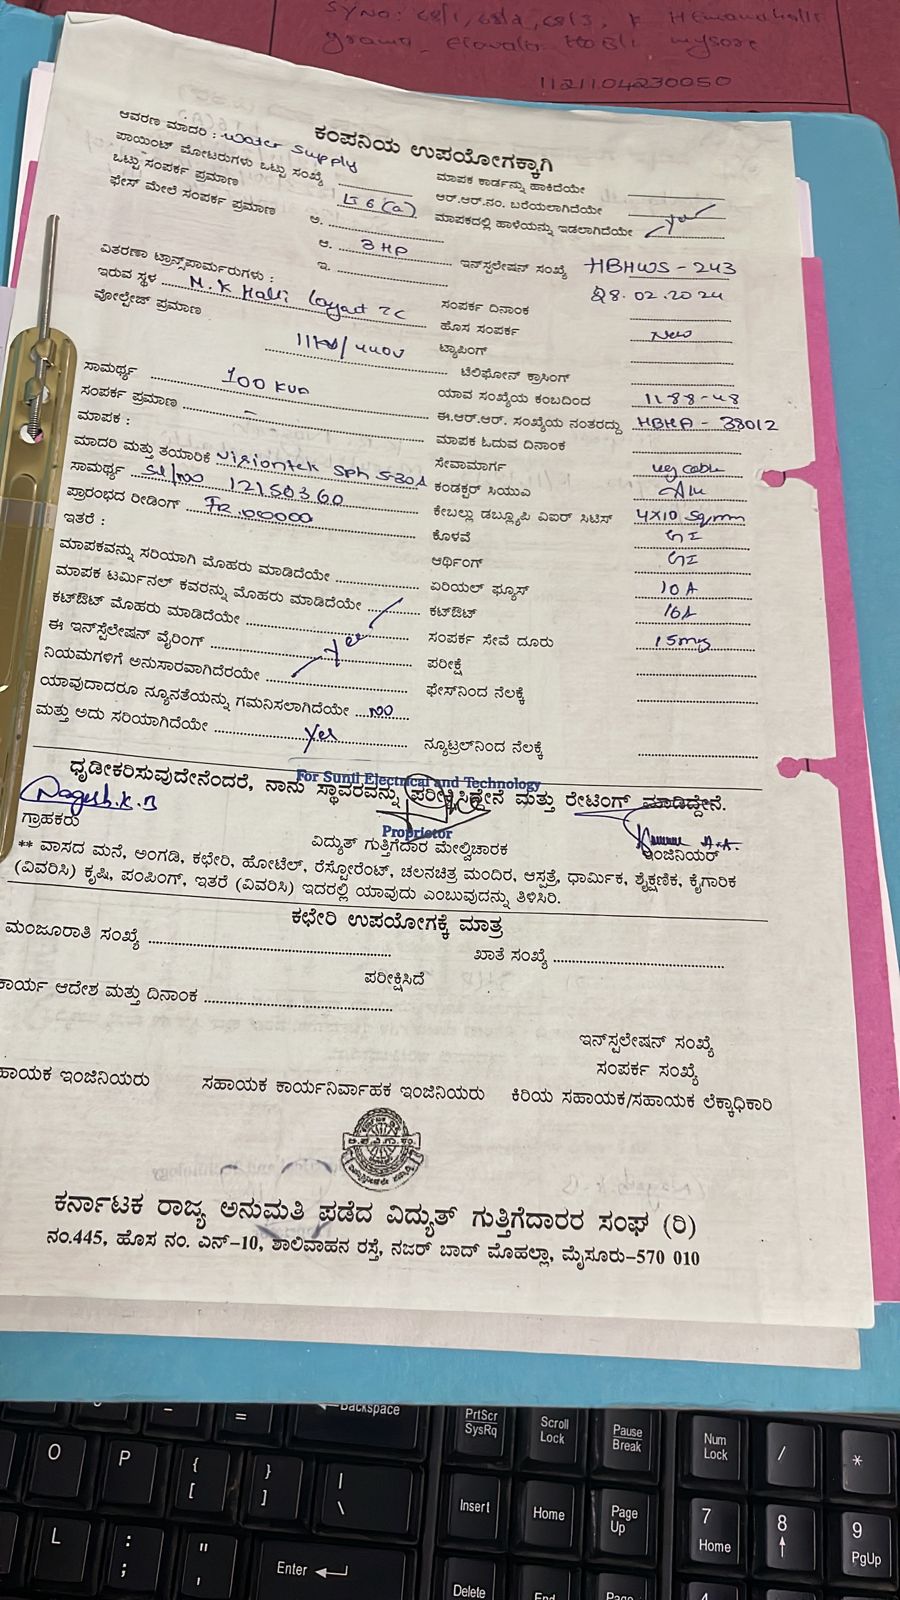 SYNO: 68/1, 68/2, 68/3, F Hemanahalli
grama, Elavala Hobli mysore
1121104230050
ಕಂಪನಿಯ ಉಪಯೋಗಕ್ಕಾಗಿ
ಆವರಣ ಮಾದರಿ : Water Supply
ಪಾಯಿಂಟ್ ಮೋಟರುಗಳು ಒಟ್ಟು ಸಂಖ್ಯೆ
ಮಾಪಕ ಕಾರ್ಡನ್ನು ಹಾಕಿದೆಯೇ
ಒಟ್ಟು ಸಂಪರ್ಕ ಪ್ರಮಾಣ LT 6(a)
ಆರ್.ಆರ್.ನಂ. ಬರೆಯಲಾಗಿದೆಯೇ
ಫೇಸ್ ಮೇಲೆ ಸಂಪರ್ಕ ಪ್ರಮಾಣ ಅ.
ಮಾಪಕದಲ್ಲಿ ಹಾಳೆಯನ್ನು ಇಡಲಾಗಿದೆಯೇ Yes
ಆ. 3 HP
ಇನ್ಸ್ಟಲೇಷನ್ ಸಂಖ್ಯೆ HBHWS - 243
ವಿತರಣಾ ಟ್ರಾನ್ಸ್‌ಪಾರ್ಮರುಗಳು : ಇ.
28.02.2024
ಇರುವ ಸ್ಥಳ M.K Halli Layout TC
ಸಂಪರ್ಕ ದಿನಾಂಕ
ವೋಲ್ಟೇಜ್ ಪ್ರಮಾಣ
ಹೊಸ ಸಂಪರ್ಕ New
11KV/440V
ಟ್ಯಾಪಿಂಗ್
ಟೆಲಿಫೋನ್ ಕ್ರಾಸಿಂಗ್
ಸಾಮರ್ಥ್ಯ 100 KVA
ಯಾವ ಸಂಖ್ಯೆಯ ಕಂಬದಿಂದ 1188-48
ಸಂಪರ್ಕ ಪ್ರಮಾಣ -
ಈ.ಆರ್.ಆರ್. ಸಂಖ್ಯೆಯ ನಂತರದ್ದು HBHA - 38012
ಮಾಪಕ :
ಮಾಪಕ ಓದುವ ದಿನಾಂಕ
ಮಾದರಿ ಮತ್ತು ತಯಾರಿಕೆ Visiontek Sph 5-30A
ಸೇವಾಮಾರ್ಗ ug cable
ಸಾಮರ್ಥ್ಯ Sl/NO 12150360
ಕಂಡಕ್ಟರ್ ಸಿಯುಎ Alu
ಪ್ರಾರಂಭದ ರೀಡಿಂಗ್ FR.00000
ಕೇಬಲ್ಲು ಡಬ್ಲ್ಯೂಪಿ ವಿಐರ್ ಸಿಟಿಸ್ 4x10 Sq.mm
ಇತರೆ :
ಕೊಳವೆ GI
ಆರ್ಥಿಂಗ್ GI
ಮಾಪಕವನ್ನು ಸರಿಯಾಗಿ ಮೊಹರು ಮಾಡಿದೆಯೇ
ಏರಿಯಲ್ ಫ್ಯೂಸ್ 10A
ಮಾಪಕ ಟರ್ಮಿನಲ್ ಕವರನ್ನು ಮೊಹರು ಮಾಡಿದೆಯೇ
ಕಟ್ಔಟ್ 16A
ಕಟ್ಔಟ್ ಮೊಹರು ಮಾಡಿದೆಯೇ
ಸಂಪರ್ಕ ಸೇವೆ ದೂರು 15mtrs
ಈ ಇನ್ಸ್ಪೆಲೇಷನ್ ವೈರಿಂಗ್ Yes
ಪರೀಕ್ಷೆ
ನಿಯಮಗಳಿಗೆ ಅನುಸಾರವಾಗಿದೆರಯೇ
ಫೇಸ್‌ನಿಂದ ನೆಲಕ್ಕೆ
ಯಾವುದಾದರೂ ನ್ಯೂನತೆಯನ್ನು ಗಮನಿಸಲಾಗಿದೆಯೇ NO
ಮತ್ತು ಅದು ಸರಿಯಾಗಿದೆಯೇ Yes
ನ್ಯೂಟ್ರಲ್‌ನಿಂದ ನೆಲಕ್ಕೆ
For Sunil Electrical and Technology
ಧೃಡೀಕರಿಸುವುದೇನೆಂದರೆ, ನಾನು ಸ್ಥಾವರವನ್ನು ಪರೀಕ್ಷಿಸಿದ್ದೇನೆ ಮತ್ತು ರೇಟಿಂಗ್ ಮಾಡಿದ್ದೇನೆ.
Nagesh.K.B
Proprietor
ಗ್ರಾಹಕರು
ವಿದ್ಯುತ್ ಗುತ್ತಿಗೆದಾರ ಮೇಲ್ವಿಚಾರಕ
ಇಂಜಿನಿಯರ್
** ವಾಸದ ಮನೆ, ಅಂಗಡಿ, ಕಛೇರಿ, ಹೋಟೆಲ್, ರೆಸ್ಟೋರೆಂಟ್, ಚಲನಚಿತ್ರ ಮಂದಿರ, ಆಸ್ಪತ್ರೆ, ಧಾರ್ಮಿಕ, ಶೈಕ್ಷಣಿಕ, ಕೈಗಾರಿಕ
(ವಿವರಿಸಿ) ಕೃಷಿ, ಪಂಪಿಂಗ್, ಇತರೆ (ವಿವರಿಸಿ) ಇದರಲ್ಲಿ ಯಾವುದು ಎಂಬುವುದನ್ನು ತಿಳಿಸಿರಿ.
ಕಛೇರಿ ಉಪಯೋಗಕ್ಕೆ ಮಾತ್ರ
ಮಂಜೂರಾತಿ ಸಂಖ್ಯೆ
ಖಾತೆ ಸಂಖ್ಯೆ
ಪರೀಕ್ಷಿಸಿದೆ
ಕಾರ್ಯ ಆದೇಶ ಮತ್ತು ದಿನಾಂಕ
ಇನ್‌ಸ್ಪಲೇಷನ್ ಸಂಖ್ಯೆ
ಸಂಪರ್ಕ ಸಂಖ್ಯೆ
ಹಾಯಕ ಇಂಜಿನಿಯರು
ಸಹಾಯಕ ಕಾರ್ಯನಿರ್ವಾಹಕ ಇಂಜಿನಿಯರು
ಕಿರಿಯ ಸಹಾಯಕ/ಸಹಾಯಕ ಲೆಕ್ಕಾಧಿಕಾರಿ
ಕರ್ನಾಟಕ ರಾಜ್ಯ ಅನುಮತಿ ಪಡೆದ ವಿದ್ಯುತ್ ಗುತ್ತಿಗೆದಾರರ ಸಂಘ (ರಿ)
ನಂ.445, ಹೊಸ ನಂ. ಎನ್-10, ಶಾಲಿವಾಹನ ರಸ್ತೆ, ನಜರ್ ಬಾದ್ ಮೊಹಲ್ಲಾ, ಮೈಸೂರು-570 010
Backspace
PrtScr
SysRq
Scroll
Lock
Pause
Break
Num
Lock
/
*
O
P
{
[
}
]
|
\
Insert
Home
Page
Up
7
Home
8
9
PgUp
L
:
;
"
'
Enter
Delete
End
Page